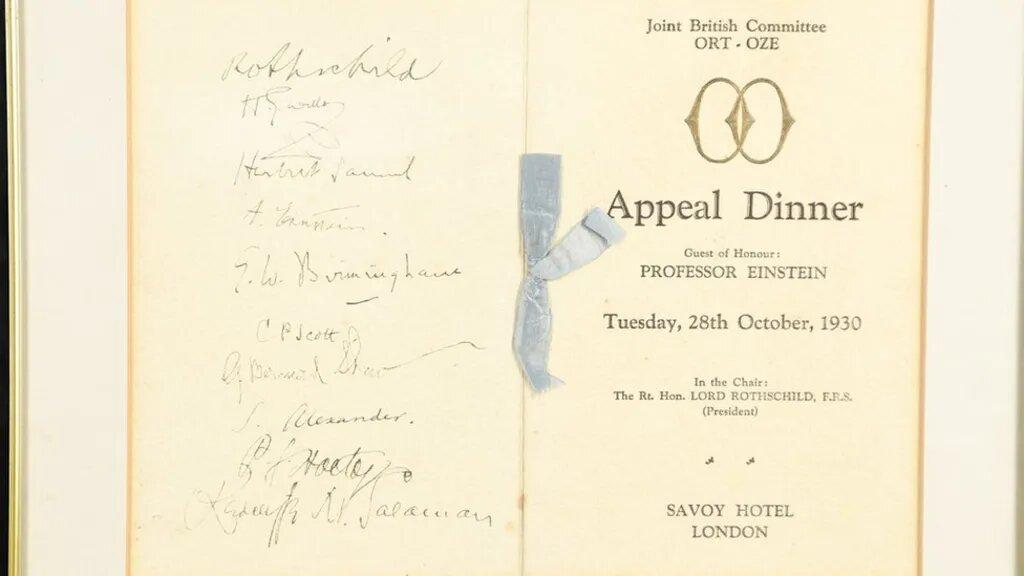 Rothschild
H G Wells
Herbert Samuel
A. Einstein.
E. W. Birmingham
C P Scott
G Bernard Shaw
S. Alexander.
Redcliffe N. Salaman
Joint British Committee
ORT - OZE
Appeal Dinner
Guest of Honour:
PROFESSOR EINSTEIN
Tuesday, 28th October, 1930
In the Chair:
The Rt. Hon. LORD ROTHSCHILD, F.R.S.
(President)
SAVOY HOTEL
LONDON